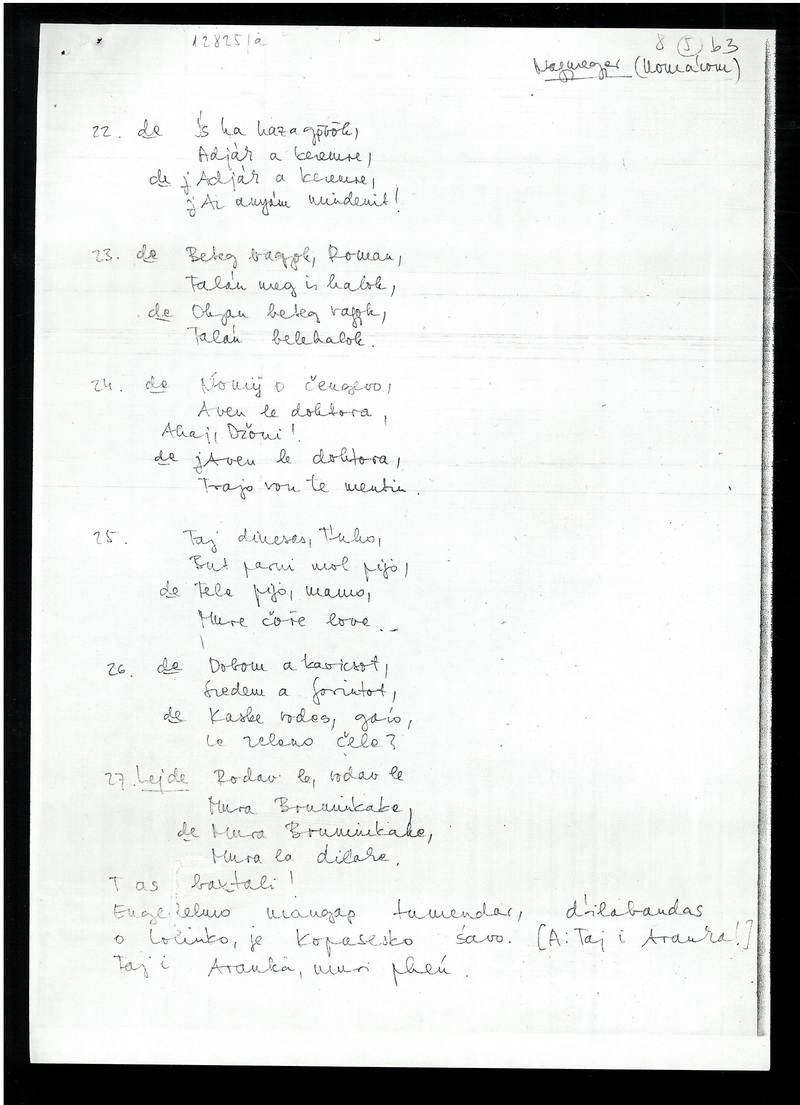 12825/a
8 (5) b3
Nagymegyer (Komárom)
22. de Ís ha hazagÿövök,
Adják a kezemre,
de jAdják a kezemre,
jAz anyám mindenit!
23. de Beteg vagyok, Roman,
Talán meg is halok,
de Olyan beteg vagyok,
Talán belehalok.
24. de Ňomij o čengevo,
Aven le doktora,
Ahaj, Džoni!
de jAven le doktora,
Trajo von te mentin.
25. Taj dineses,
But parni mol pijo,
de Tele pijo, mamo,
Mure čoře love.
26. de Dobom a kavicsot,
Szedem a forintot,
de Kaske rodes, gajo,
Le zeleno čele?
27. Lej de Rodav le, rodav le
Mura Bruminkake,
de Mura Bruminkake,
Mura la dilake.
T as baxtali!
Engedelmo mangap tumendar, džilabandas
oLočinko, je Kopasesko šavo. [A: Taj i Aranka!]
Taj i Aranka, muri pheń.